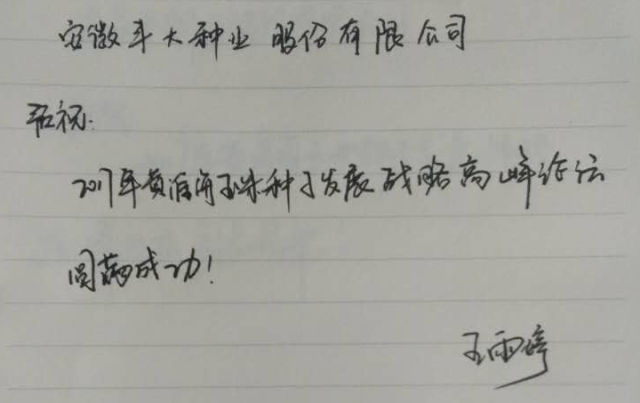 安徽丰大种业股份有限公司
祝:
2017年黄淮海玉米种子发展战略高峰论坛
圆满成功!
王雨婷